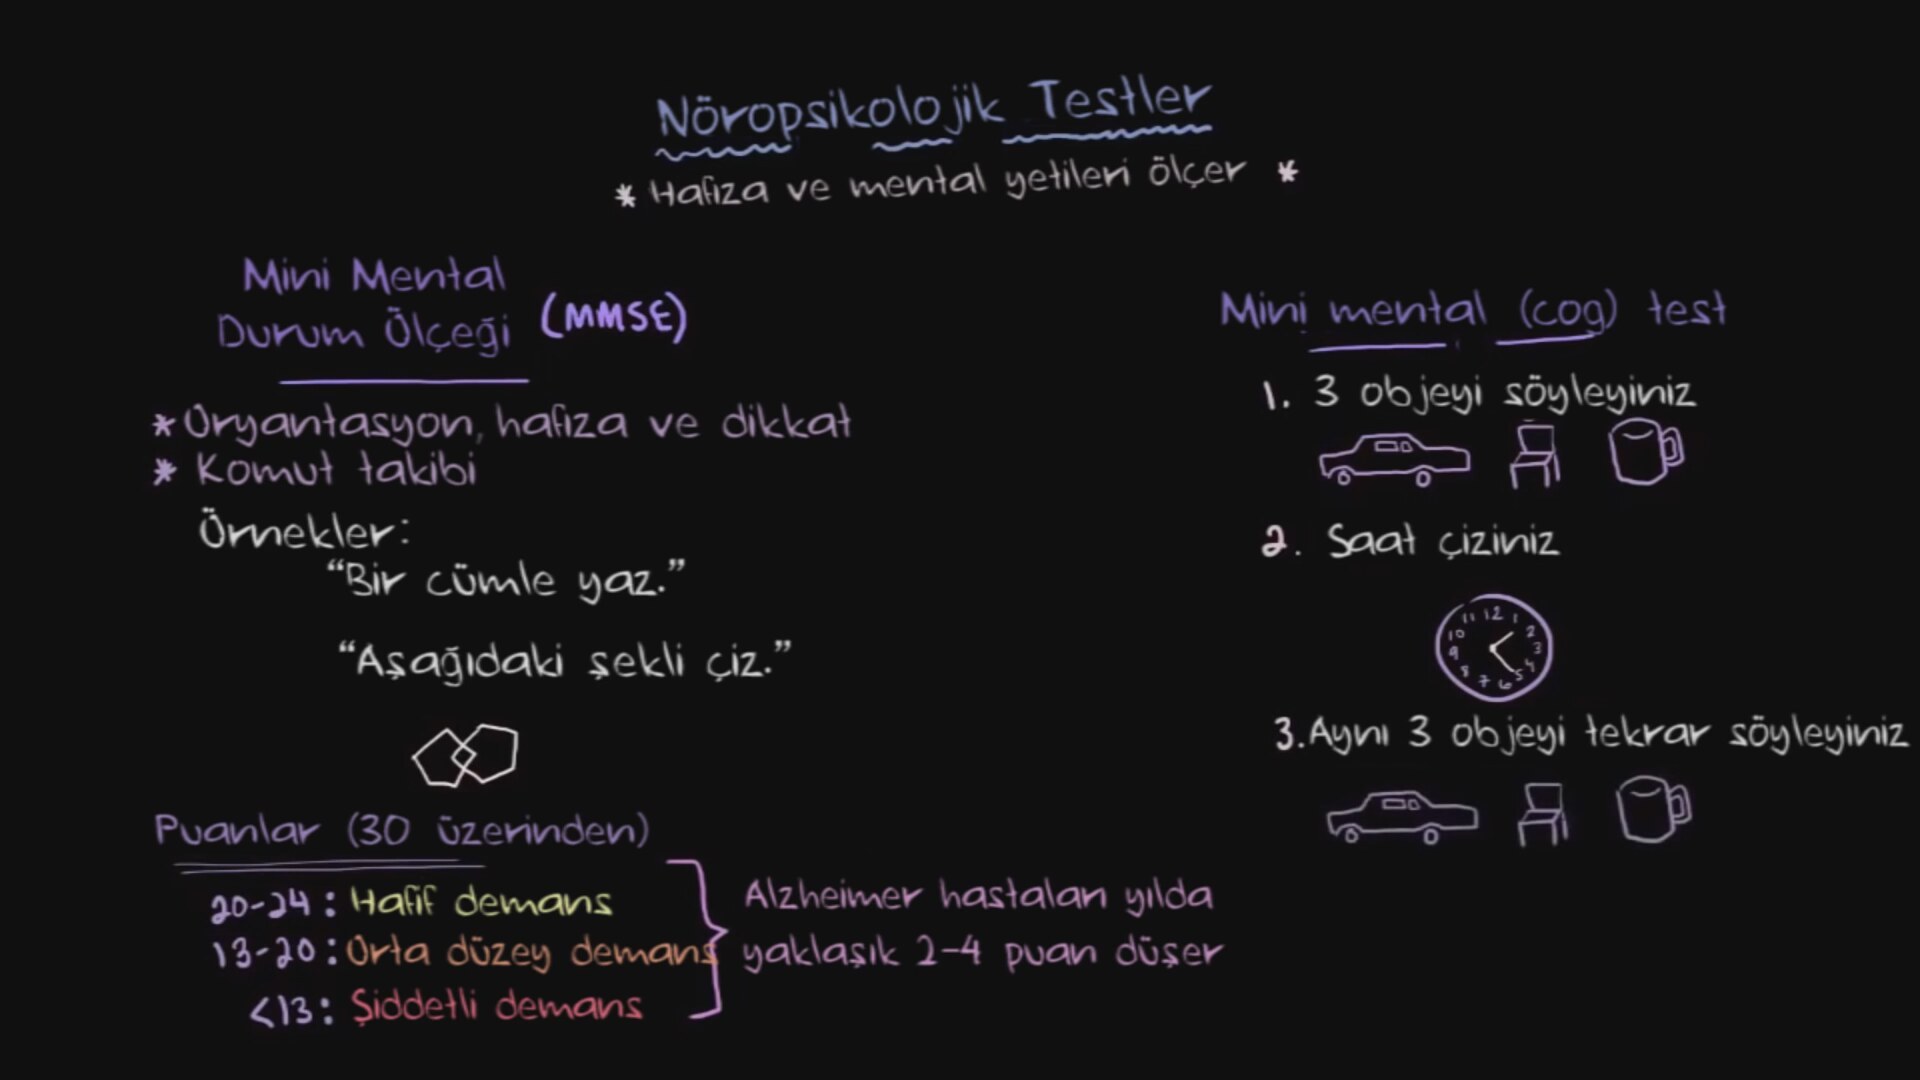 Nöropsikolojik Testler
* Hafıza ve mental yetileri ölçer *
Mini Mental
Durum Ölçeği (MMSE)
* Oryantasyon, hafıza ve dikkat
* Komut takibi
Örnekler:
“Bir cümle yaz.”
“Aşağıdaki şekli çiz.”
Puanlar (30 üzerinden)
20-24: Hafif demans
13-20: Orta düzey demans
<13: Şiddetli demans
Alzheimer hastaları yılda
yaklaşık 2-4 puan düşer
Mini mental (cog) test
1. 3 objeyi söyleyiniz
2. Saat çiziniz
11 12 1
10 2
9 3
8 4
7 6 5
3. Aynı 3 objeyi tekrar söyleyiniz